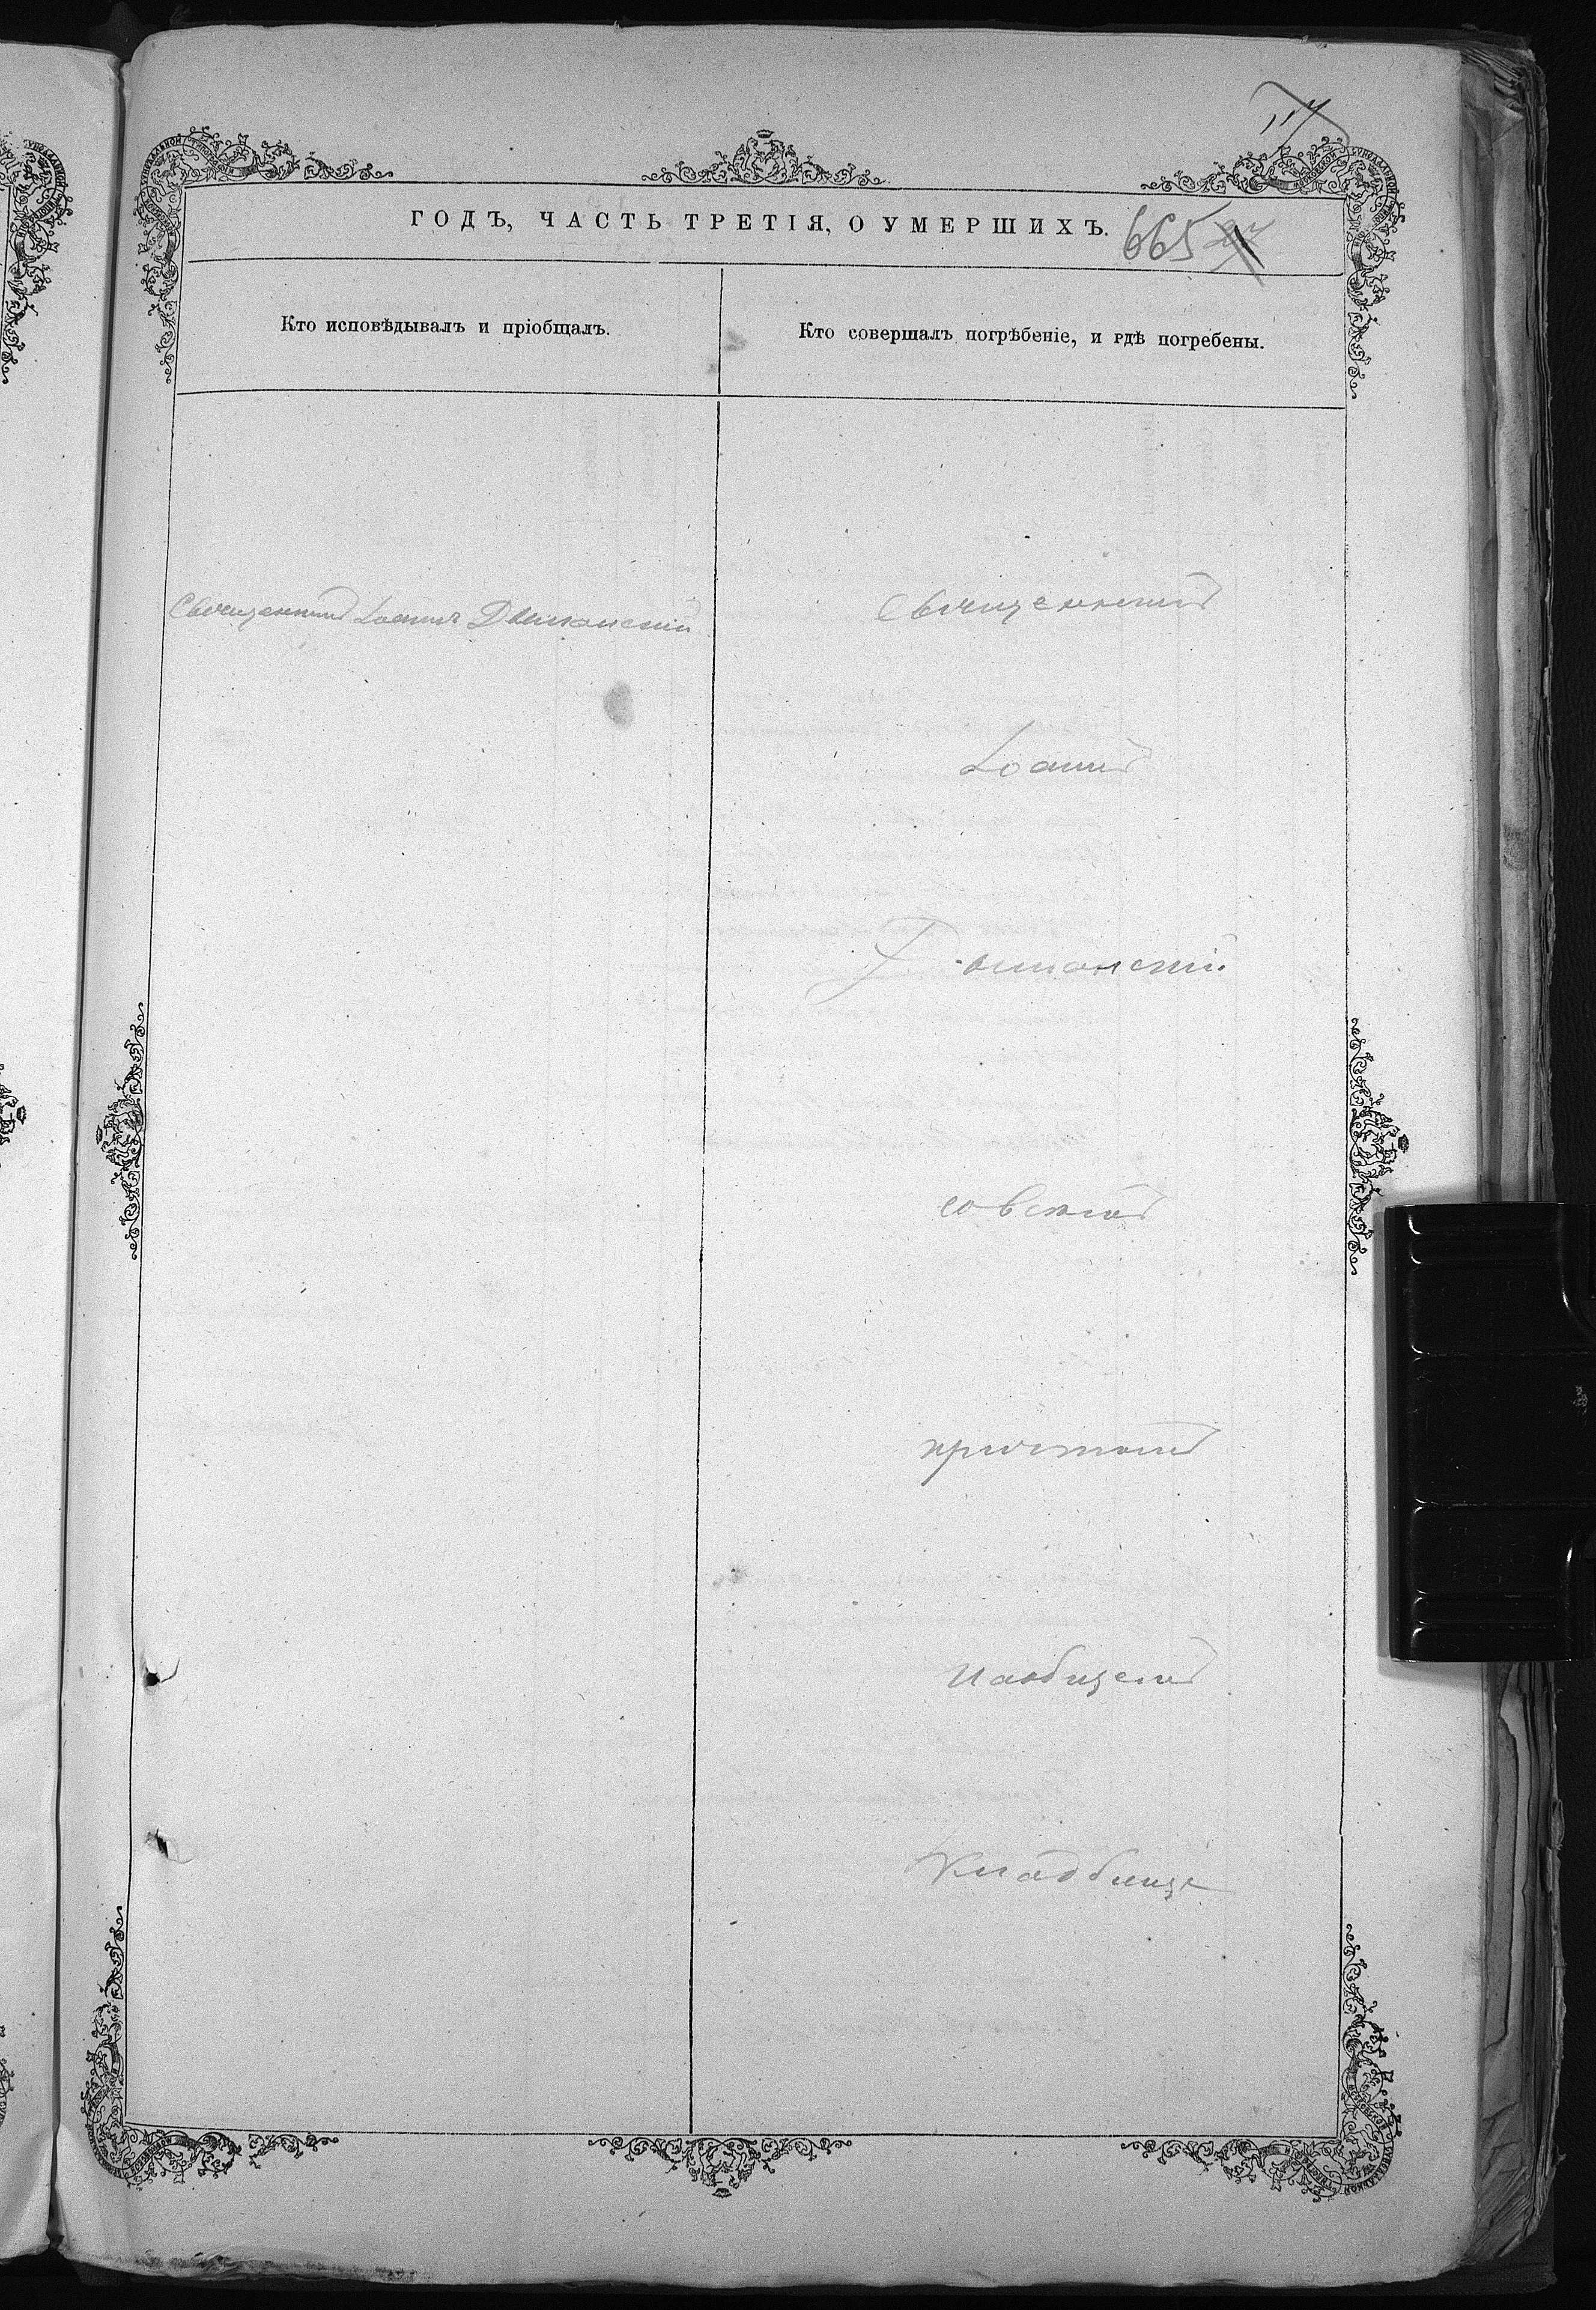 117
ГОДЪ, ЧАСТЬ ТРЕТІЯ, О УМЕРШИХЪ. 665
Кто исповѣдывалъ и пріобщалъ.
Кто совершалъ погрѣбеніе, и гдѣ погребены.
Священникъ Іоаннъ
Священникъ
Іоаннъ
со всѣмъ
причтомъ
На общемъ
Кладбищѣ